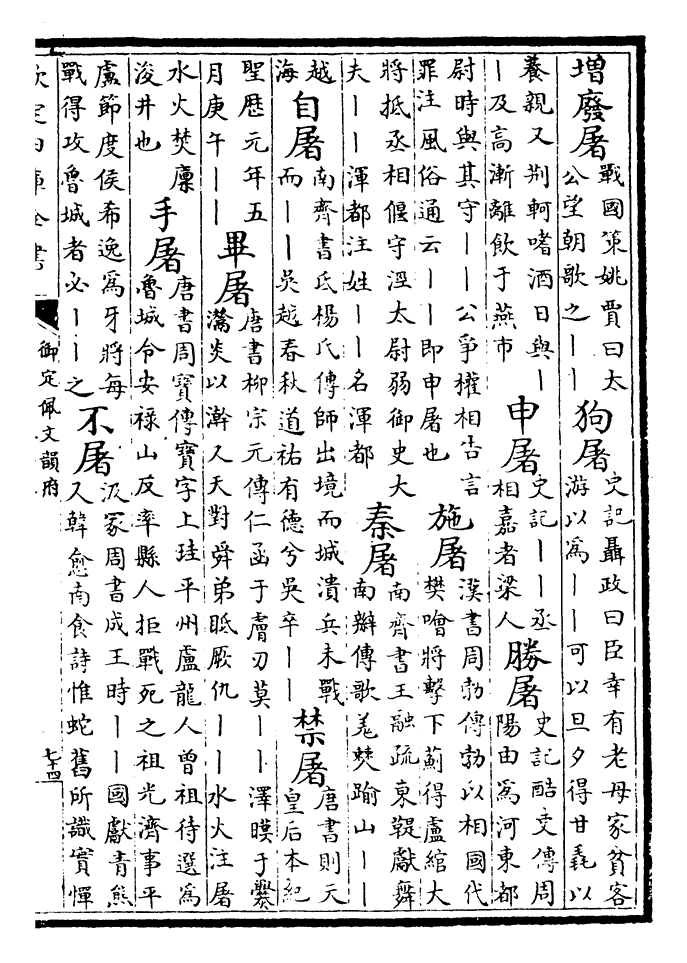 增廢屠
戰國策姚賈曰太
公望朝歌之丨丨
狗屠
史記聶政曰臣幸有老母家貧客
游以爲丨丨可以旦夕得甘毳以
養親又荆軻嗜酒日與丨
丨及高漸離飲于燕市
申屠
史記丨丨丞
相嘉者梁人
勝屠
史記酷吏傳周
陽由爲河東都
尉時與其守丨丨公爭權相告言
罪注風俗通云丨丨即申屠也
施屠
漢書周勃傳勃以相國代
樊噲將擊下薊得盧綰大
將抵丞相偃守涇太尉弱御史大
夫丨丨渾都注姓丨丨名渾都
秦屠
南齊書王融疏東鞮獻舞
南辮傳歌羌僰踰山丨丨
越
海
自屠
南齊書氐楊氏傳師出境而城潰兵未戰
而丨丨吳越春秋道祐有德兮吳卒丨丨
禁屠
唐書則天
皇后本紀
聖歷元年五
月庚午丨丨
畢屠
唐書柳宗元傳仁函于膚刃莫丨丨澤熯于爨
炎以澣又天對舜弟眡厥仇丨丨水火注屠
水火焚廩
浚井也
手屠
唐書周寶傳寶字上珪平州盧龍人曾祖待選爲
魯城令安祿山反率縣人拒戰死之祖光濟事平
盧節度侯希逸爲牙將每
戰得攻魯城者必丨丨之
不屠
汲冢周書成王時丨丨國獻青熊
又韓愈南食詩惟蛇舊所識實憚
欽定四庫全書
御定佩文韻府
七十四